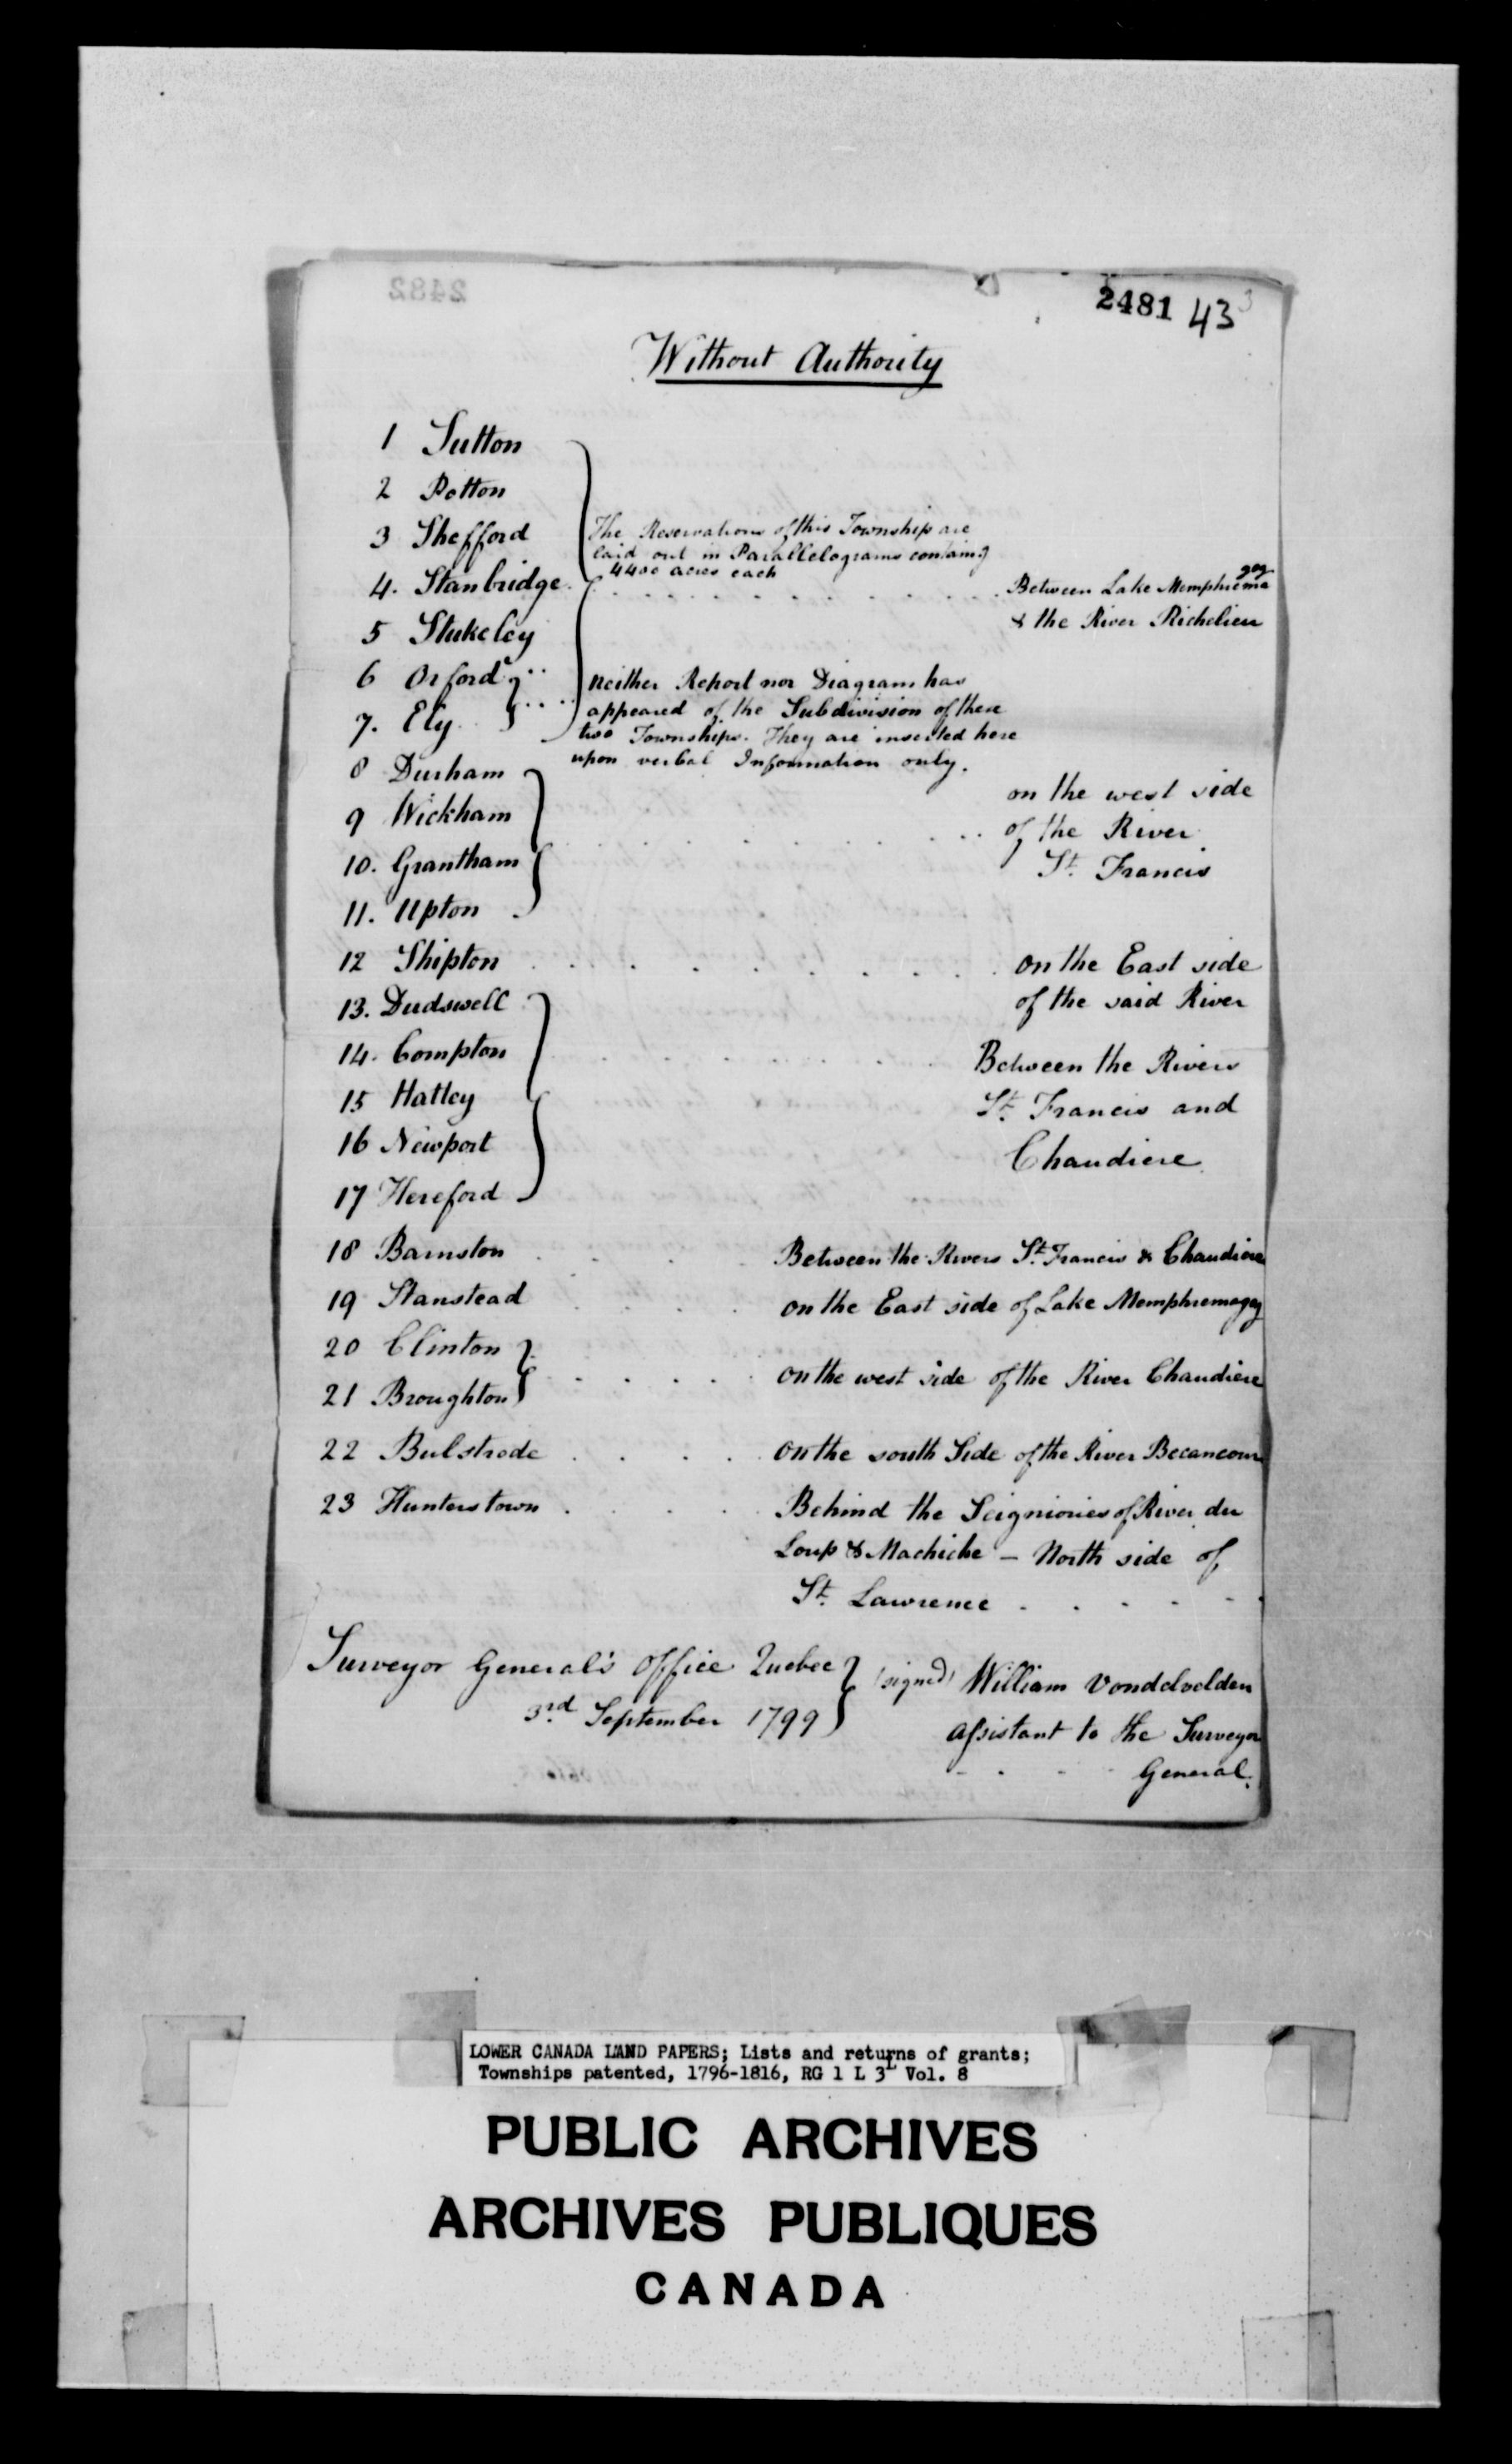 2482
2481 43
Without Authority
1 Sutton
2 Potton
3 Shefford
The Reservations of this Township are
laid out in Parallelograms containg
4400 acres each
4. Stanbridge . . . . . . . . . . Between Lake Memphremagog
& the River Richelieu
5 Stukeley
6 Orford
7. Ely
neither Report nor Diagram has
appeared of the Subdivision of these
two Townships. They are inserted here
upon verbal Information only.
8 Durham
9 Wickham
10. Grantham
11. Upton
on the west side
of the River
St. Francis
12 Shipton . . . . . . . . on the East side
of the said River
13. Dudswell
14. Compton
15 Hatley
16 Newport
17 Hereford
Between the Rivers
St. Francis and
Chaudiere
18 Barnston . . . . Between the Rivers St. Francis & Chaudiere
19 Stanstead . . . . on the East side of Lake Memphremagog
20 Clinton
21 Broughton
. . . . . on the west side of the River Chaudiere
22 Bulstrode . . . . on the south Side of the River Becancour
23 Hunterstown . . . . Behind the Seigniories of River du
Loup & Machiche – North side of
St. Lawrence . . . . .
Surveyor General's Office Quebec
3rd September 1799
(signed) William Vondelvelden
assistant to the Surveyor
General.
LOWER CANADA LAND PAPERS; Lists and returns of grants;
Townships patented, 1796-1816, RG 1 L 3L Vol. 8
PUBLIC ARCHIVES
ARCHIVES PUBLIQUES
CANADA